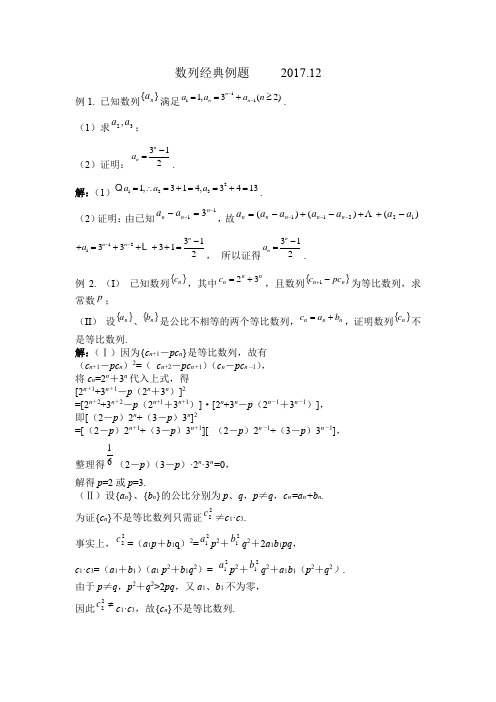 数列经典例题 2017.12
例1. 已知数列{a_n}满足a_1=1,a_n=3^{n-1}+a_{n-1}(n≥2).
（1）求a_2,a_3；
（2）证明：a_n=\frac{3^n-1}{2}.
解：（1）Q a_1=1,∴a_2=3+1=4,a_3=3^2+4=13.
（2）证明：由已知a_n-a_{n-1}=3^{n-1}，故a_n=(a_n-a_{n-1})+(a_{n-1}-a_{n-2})+Λ+(a_2-a_1)
+a_1=3^{n-1}+3^{n-2}+L+3+1=\frac{3^n-1}{2}， 所以证得a_n=\frac{3^n-1}{2}.
例2.（I） 已知数列{c_n}，其中c_n=2^n+3^n，且数列{c_{n+1}-pc_n}为等比数列，求
常数p；
（II） 设{a_n}、{b_n}是公比不相等的两个等比数列，c_n=a_n+b_n，证明数列{c_n}不
是等比数列.
解：（Ⅰ）因为{c_{n+1}－pc_n}是等比数列，故有
（c_{n+1}－pc_n）^2=（ c_{n+2}－pc_{n+1}）（c_n－pc_{n－1}），
将c_n=2^n＋3^n代入上式，得
[2^{n＋1}+3^{n＋1}－p（2^n＋3^n）]^2
=[2^{n＋2}+3^{n＋2}－p（2^{n+1}＋3^{n+1}）]·[2^n+3^n－p（2^{n－1}＋3^{n－1}）]，
即[（2－p）2^n+（3－p）3^n]^2
=[（2－p）2^{n+1}+（3－p）3^{n+1}][ （2－p）2^{n－1}+（3－p）3^{n－1}]，
整理得\frac{1}{6}（2－p）（3－p）·2^n·3^n=0，
解得p=2或p=3.
（Ⅱ）设{a_n}、{b_n}的公比分别为p、q，p≠q，c_n=a_n+b_n.
为证{c_n}不是等比数列只需证c_2^2≠c_1·c_3.
事实上，c_2^2=（a_1p＋b_1q）^2=a_1^2p^2＋b_1^2q^2＋2a_1b_1pq，
c_1·c_3=（a_1＋b_1）（a_1 p^2＋b_1q^2）= a_1^2p^2＋b_1^2q^2＋a_1b_1（p^2＋q^2）.
由于p≠q，p^2＋q^2>2pq，又a_1、b_1不为零，
因此c_2^2≠c_1·c_3，故{c_n}不是等比数列.